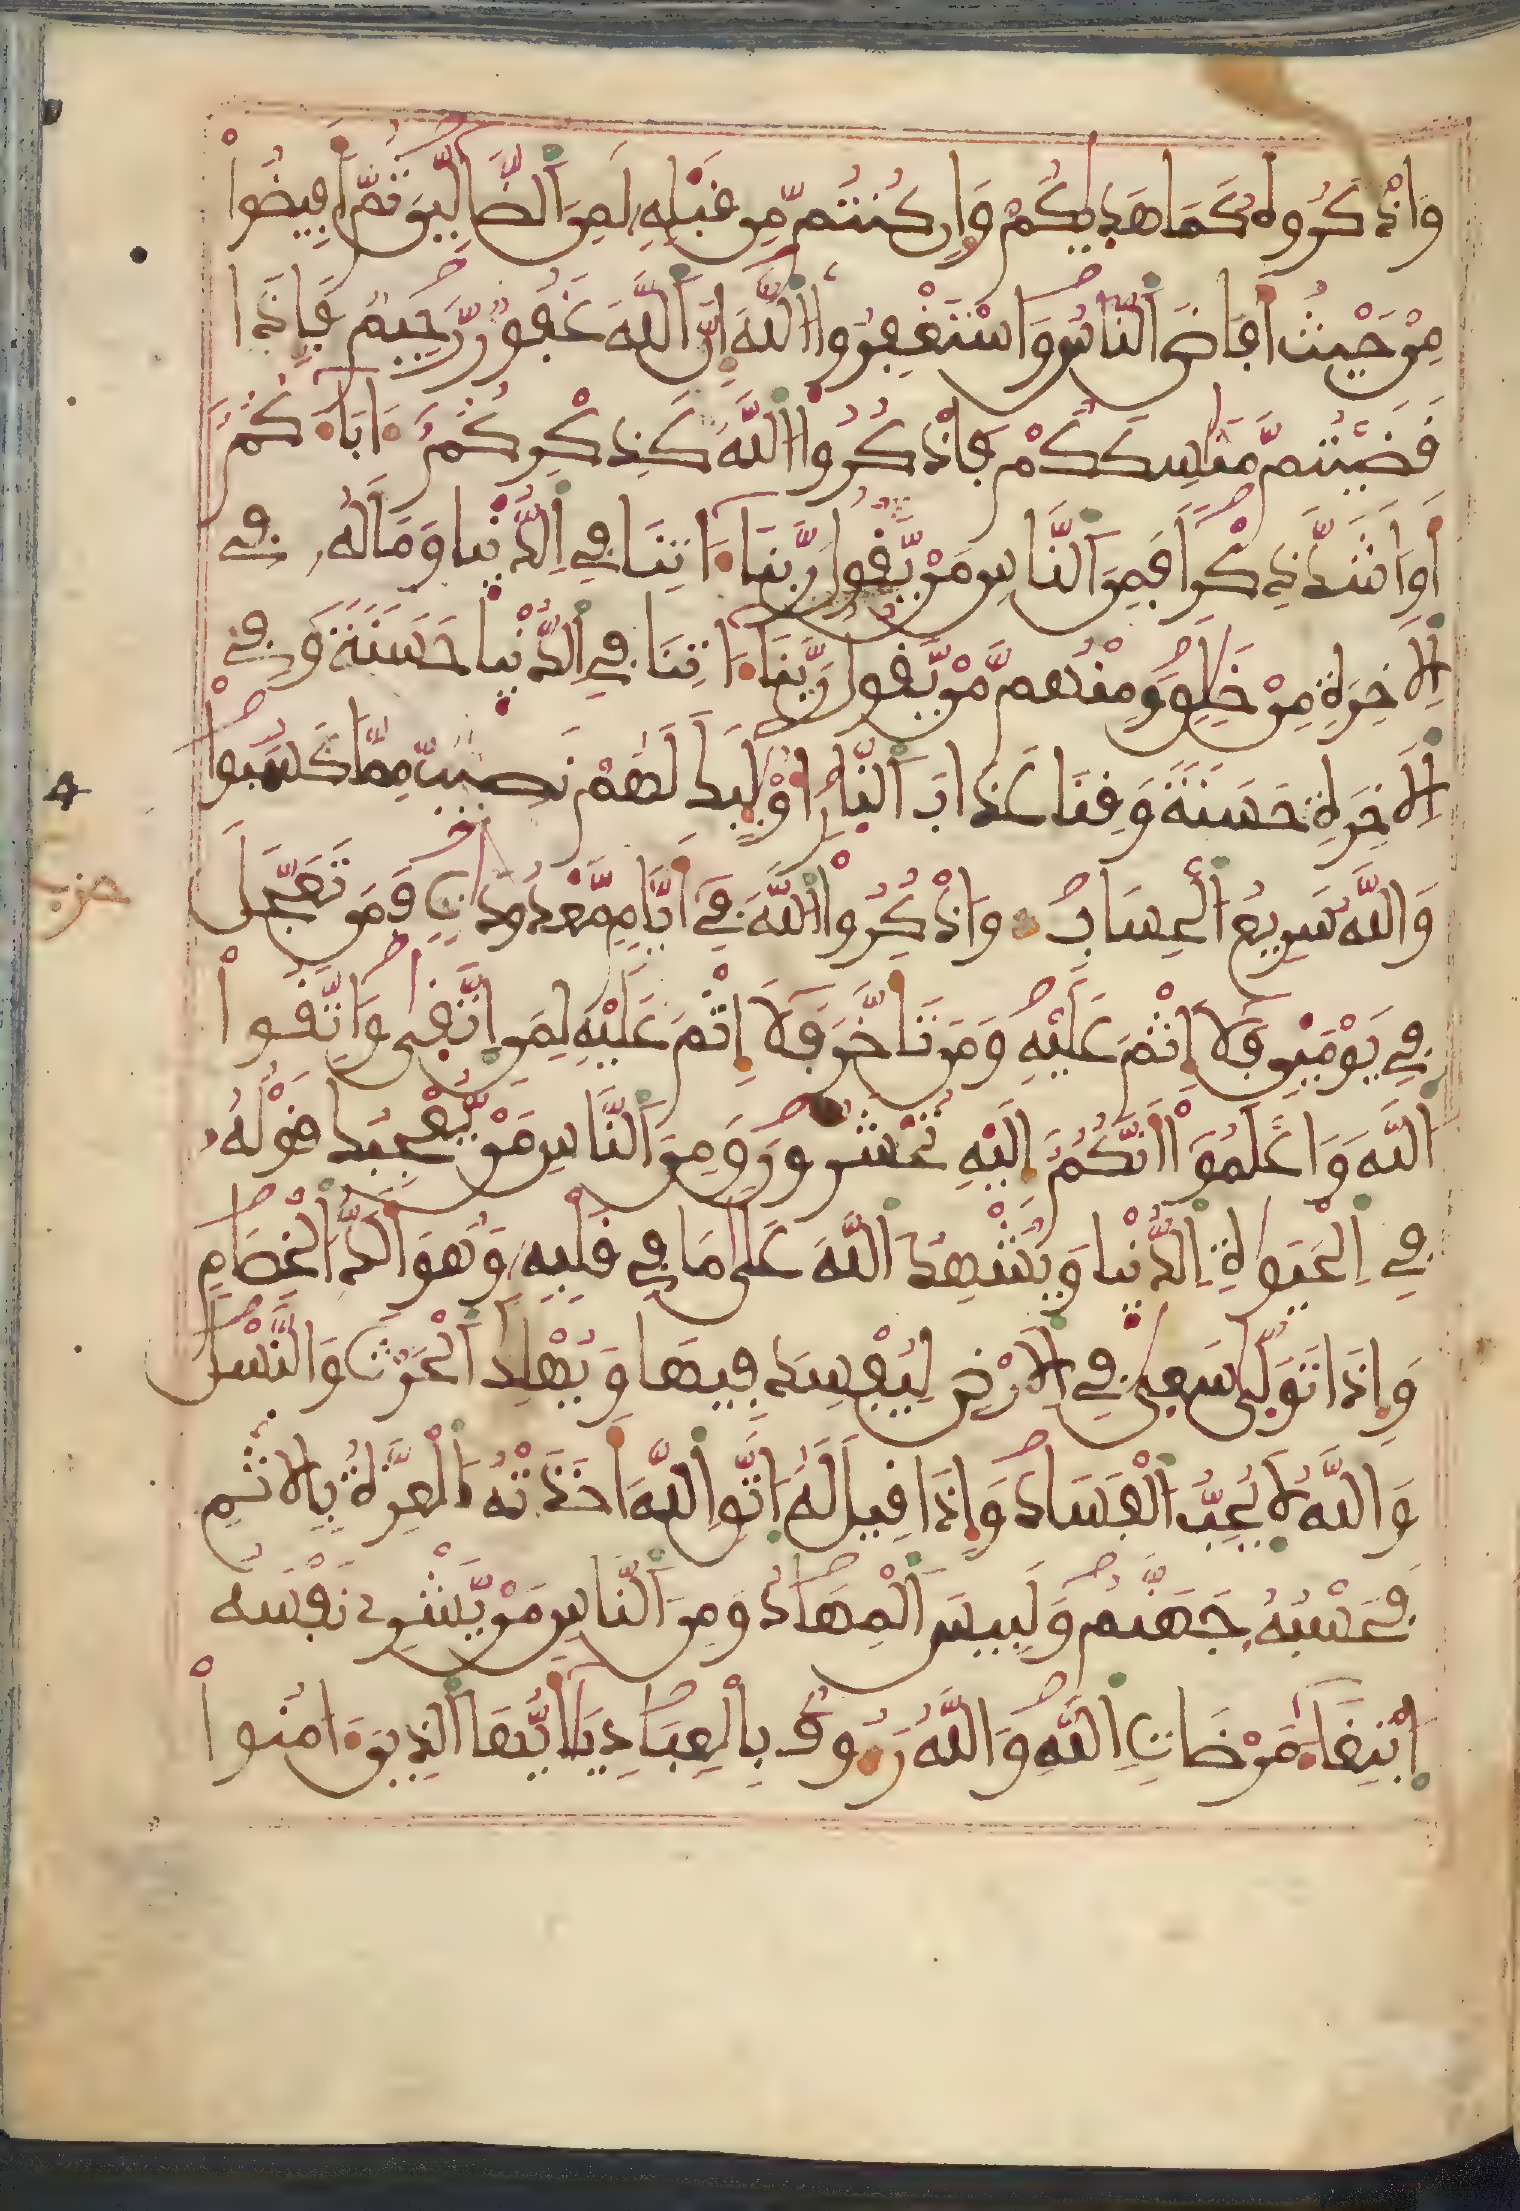 وَاذْكُرُوهُ كَمَا هَدٜيٰكُمْ وَإِن كُنتُم مِّن قَبْلِهِۦ لَمِنَ ٱلضَّآلِّينَ ثُمَّ أَفِيضُواْ
مِنْ حَيْثُ أَفَاضَ ٱلنَّاسُ وَاسْتَغْفِرُواْ ٱللَّهَ إِنَّ ٱللَّهَ غَفُورٌ رَّحِيمٌ فَإِذَا
قَضَيْتُم مَّنَٰسِكَكُمْ فَاذْكُرُواْ ٱللَّهَ كَذِكْرِكُمُۥٓ ءَابَآءَكُمُۥٓ
أَوَ اشَدَّ ذِكْراً فَمِنَ ٱلنَّاسِ مَنْ يَّقُولُ رَبَّنَآ ءَاتِنَا فِي اِلدُّنْيَا وَمَا لَهُۥ فِي
اِلَاخِرَةِ مِنْ خَلَٰقٍ وَمِنْهُم مَّنْ يَّقُولُ رَبَّنَآ ءَاتِنَا فِي اِلدُّنْيَا حَسَنَةً وَفِي
اِلَاخِرَةِ حَسَنَةً وَقِنَا عَذَابَ ٱلنَّارِ أُوْلَٰٓئِكَ لَهُمْ نَصِيبٌ مِّمَّا كَسَبُواْ
وَاللَّهُ سَرِيعُ ٱلْحِسَابِ وَاذْكُرُواْ ٱللَّهَ فِيٓ أَيَّامٍ مَّعْدُودَٰتٍ فَمَن تَعَجَّلَ
فِي يَوْمَيْنِ فَلَآ إِثْمَ عَلَيْهِ وَمَن تَأَخَّرَ فَلَآ إِثْمَ عَلَيْهِ لِمَنِ اِتَّقٜيٰ وَاتَّقُواْ
اللَّهَ وَاعْلَمُوٓاْ أَنَّكُمُۥٓ إِلَيْهِ تُحْشَرُونَ وَمِنَ ٱلنَّاسِ مَنْ يُّعْجِبُكَ قَوْلُهُۥ
فِي اِلْحَيَوٰةِ اِلدُّنْيَا وَيُشْهِدُ ٱللَّهَ عَلَىٰ مَا فِي قَلْبِهِۦ وَهُوَ أَلَدُّ ٱلْخِصَامِ
وَإِذَا تَوَلّٜيٰ سَعٜيٰ فِي اِلَارْضِ لِيُفْسِدَ فِيهَا وَيُهْلِكَ ٱلْحَرْثَ وَالنَّسْلَ
وَاللَّهُ لَا يُحِبُّ ٱلْفَسَادَ وَإِذَا قِيلَ لَهُ اُتَّقِ اِللَّهَ أَخَذَتْهُ ٱلْعِزَّةُ بِالِاثْمِ
فَحَسْبُهُۥ جَهَنَّمُ وَلَبِيسَ ٱلْمِهَادُ وَمِنَ ٱلنَّاسِ مَنْ يَّشْرِي نَفْسَهُ
اُبْتِغَآءَ مَرْضَاتِ اِللَّهِ وَاللَّهُ رَءُوفٌ بِالْعِبَادِ يَٰٓأَيُّهَا ٱلذِينَ ءَامَنُواْ
حزب